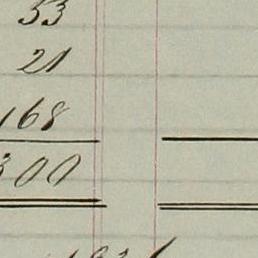 53
21
168
300